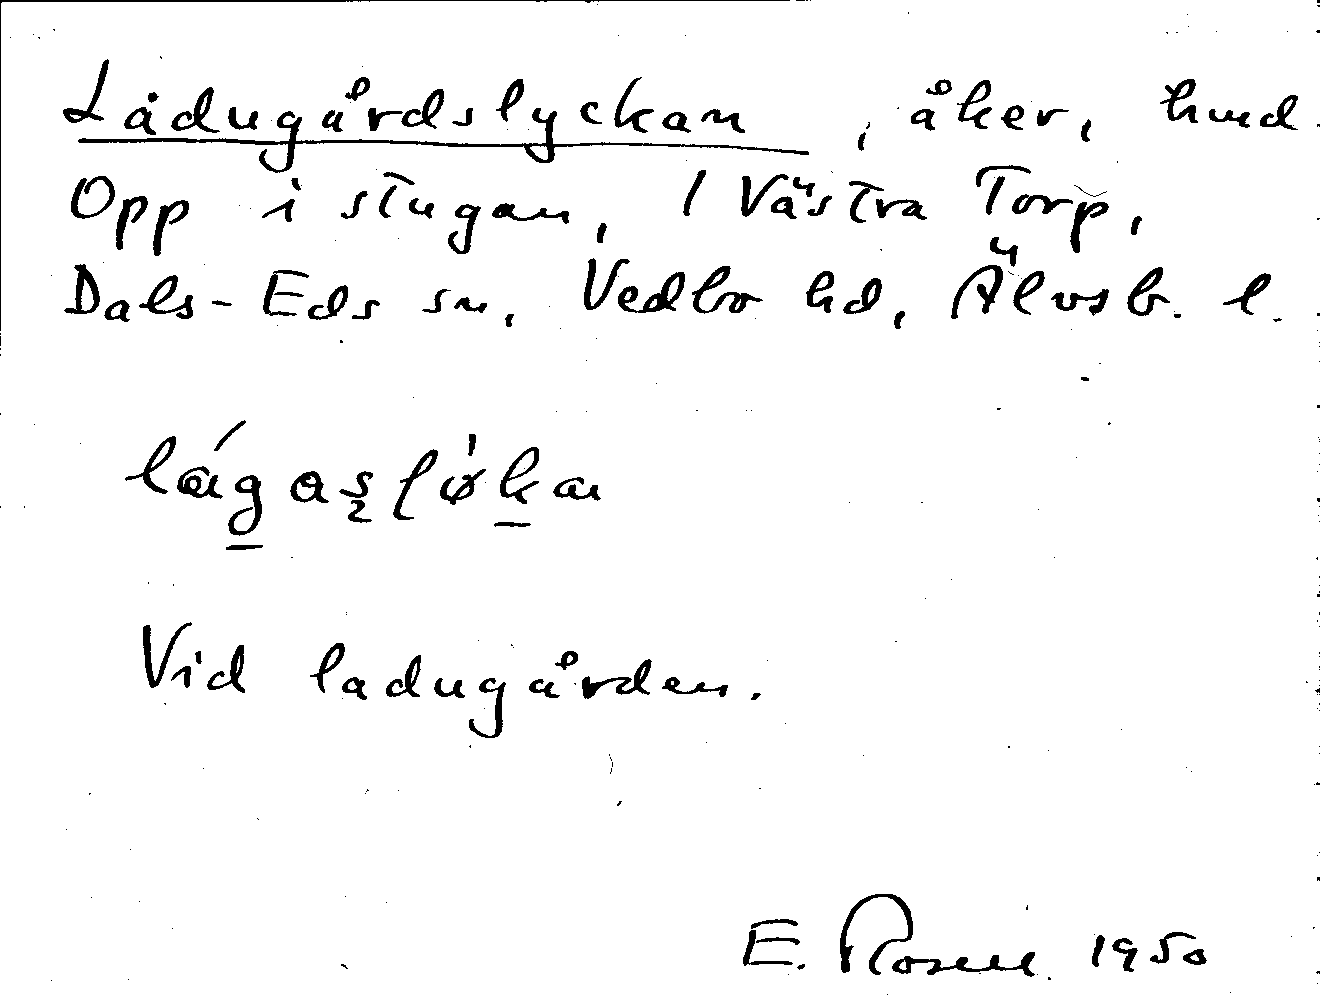 Ladugårdslyckan, åker, hmd
Opp i stugan, 1 Västra Torp,
Dals-Eds sn, Vedbo hd, Älvsb. l.
Vid ladugården.
E. Rosell 1950